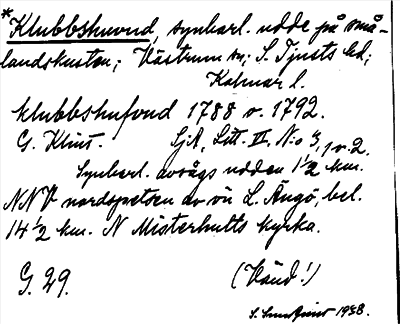 *Klubbshuvud, synbarl. udde på små-
landskusten; Västrum sn; S. Tjusts hd;
Kalmar l.
Klubbshufvud 1788 o. 1792.
G. Klint. SjA, Litt. II, N:o 4, 1 o. 2.
Synbarl. avsågs udden 1 1/2 km.
NNV nordspetsen av ön L. Ängö, bel.
14 1/2 km. N Misterhults kyrka.
G. 29. (Vänd!)
S. 1938.